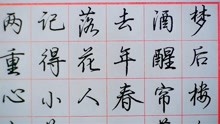 梦后楼
酒醒帘
去年春
落花人
记得小
两重心